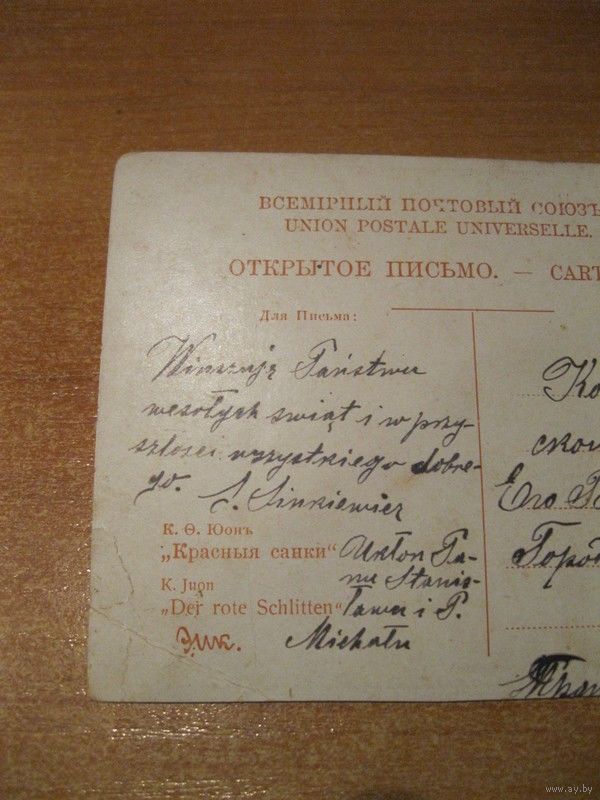 ВСЕМІРНЫЙ ПОЧТОВЫЙ СОЮЗЪ
UNION POSTALE UNIVERSELLE.
ОТКРЫТОЕ ПИСЬМО. — CART
Для Письма:
Winszuję Państwu
wesołych świąt i w przy-
szłości wszystkiego dobre-
go. S. Sinkiewicz
К. Ѳ. Юонъ
„Красныя санки"
K. Juon
„Der rote Schlitten"
Ukłon Pa-
nu Stanis-
ława i P.
Michału
Ко
ской
Его
Горо
www.ay.by